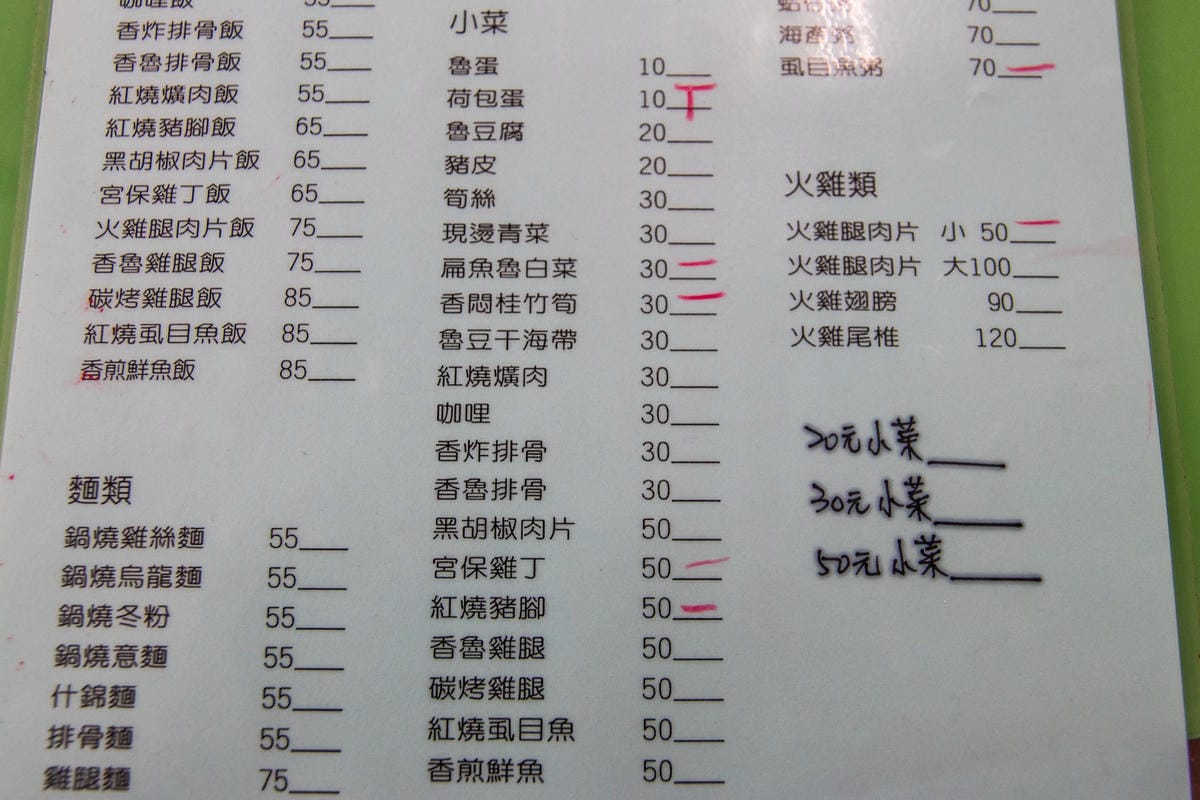 咖哩飯 55
香炸排骨飯 55
香魯排骨飯 55
紅燒爌肉飯 55
紅燒豬腳飯 65
黑胡椒肉片飯 65
宮保雞丁飯 65
火雞腿肉片飯 75
香魯雞腿飯 75
碳烤雞腿飯 85
紅燒虱目魚飯 85
香煎鮮魚飯 85
麵類
鍋燒雞絲麵 55
鍋燒烏龍麵 55
鍋燒冬粉 55
鍋燒意麵 55
什錦麵 55
排骨麵 55
雞腿麵 75
小菜
魯蛋 10
荷包蛋 10
魯豆腐 20
豬皮 20
筍絲 30
現燙青菜 30
扁魚魯白菜 30
香悶桂竹筍 30
魯豆干海帶 30
紅燒爌肉 30
咖哩 30
香炸排骨 30
香魯排骨 30
黑胡椒肉片 50
宮保雞丁 50
紅燒豬腳 50
香魯雞腿 50
碳烤雞腿 50
紅燒虱目魚 50
香煎鮮魚 50
蛤仔粥 70
海產粥 70
虱目魚粥 70
火雞類
火雞腿肉片 小 50
火雞腿肉片 大100
火雞翅膀 90
火雞尾椎 120
20元小菜
30元小菜
50元小菜